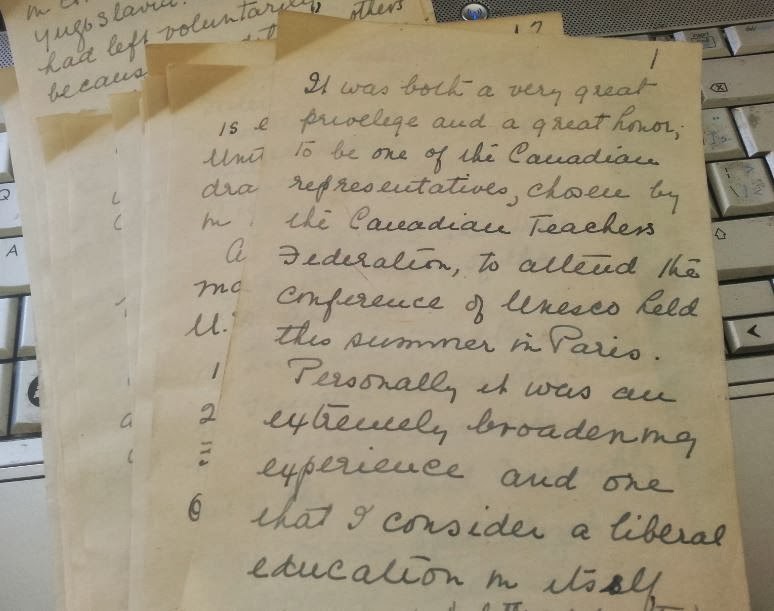 Yugoslavia.
had left voluntarily, others
because
12
1
It was both a very great
privelege and a great honor,
to be one of the Canadian
representatives, chosen by
the Canadian Teachers
Federation, to attend the
conference of Unesco held
this summer in Paris.
Personally it was an
extremely broadening
experience and one
that I consider a liberal
education in itself
is e
Unit
dra
m
a
mo
U.
1
2
=
6
Q
A